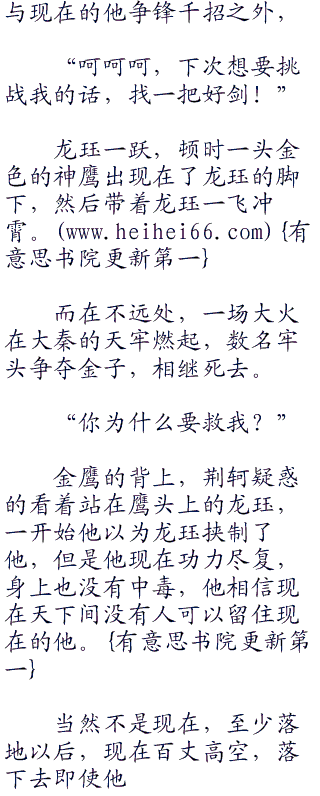 与现在的他争锋千招之外，
“呵呵呵，下次想要挑
战我的话，找一把好剑！”
龙珏一跃，顿时一头金
色的神鹰出现在了龙珏的脚
下，然后带着龙珏一飞冲
霄。(www.heihei66.com){有
意思书院更新第一}
而在不远处，一场大火
在大秦的天牢燃起，数名牢
头争夺金子，相继死去。
“你为什么要救我？”
金鹰的背上，荆轲疑惑
的看着站在鹰头上的龙珏，
一开始他以为龙珏挟制了
他，但是他现在功力尽复，
身上也没有中毒，他相信现
在天下间没有人可以留住现
在的他。{有意思书院更新第
一}
当然不是现在，至少落
地以后，现在百丈高空，落
下去即使他